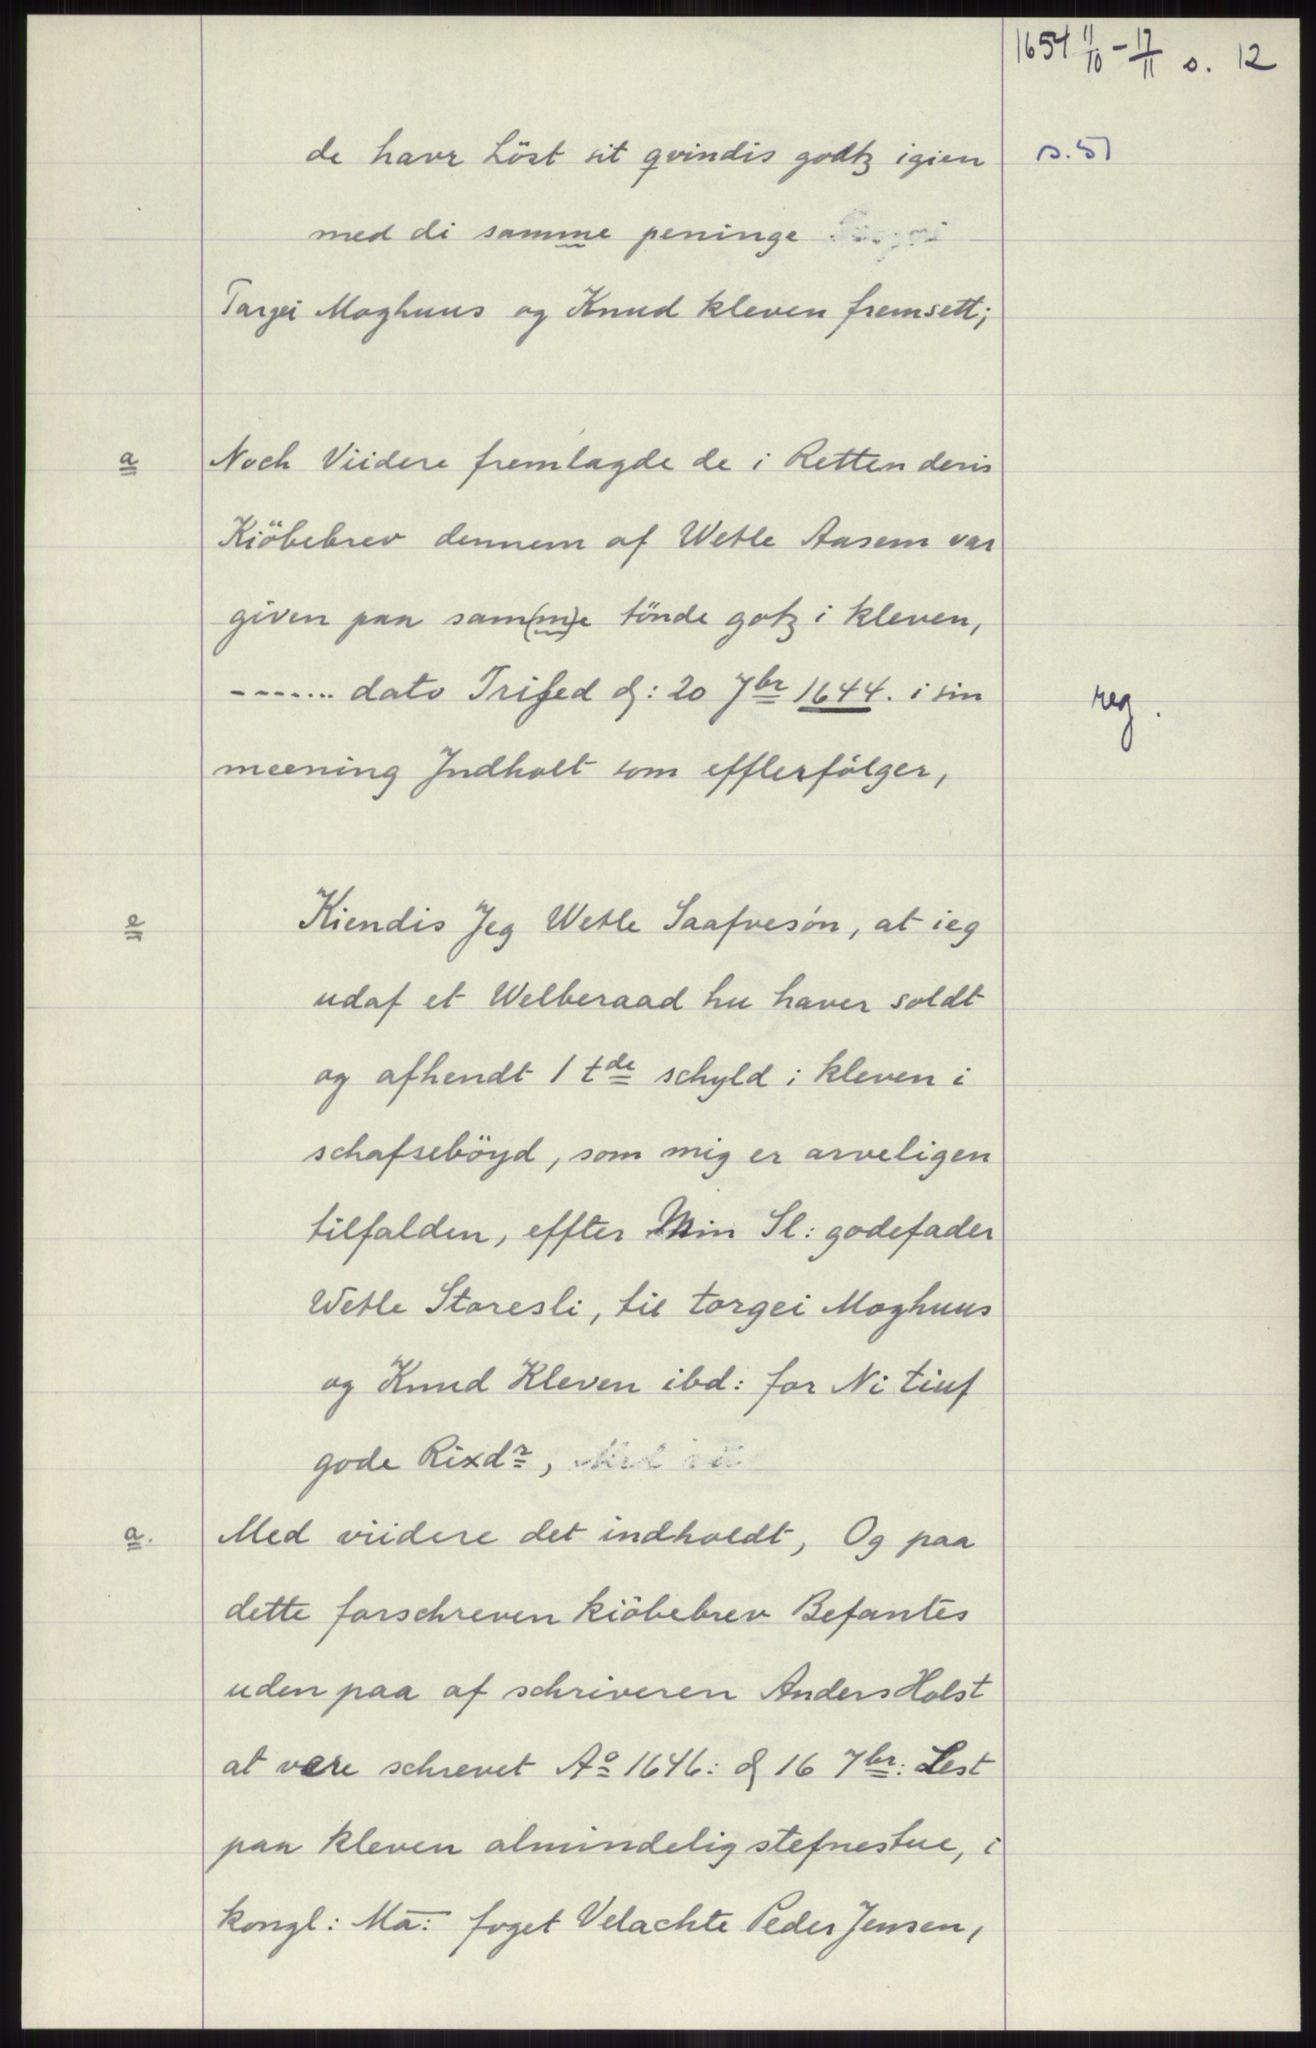 1654 11/10 – 17/11 s. 12
de havr Löst sit qvindis godtz igien s. 5
med di samme peninge
Targei Moghuus og Knud kleven fremsett;
a Noch Viidere fremlagde de i Retten deris
Kiöbebrev dennem af Wetle Aasem var
given paa sam(m)e tönde gotz i kleven,
------- dato Trised d: 20 7br 1644. i sin reg.
meening Indholt som efflerfölger,
r Kiendis Jeg Wetle Saafvesön, at ieg
udaf et Welberaad hu haver soldt
og afhendt 1 tde schyld i kleven i
schafseböyd, som mig er arveligen
tilfalden, effter Min Sl: godefader
Wetle Staresli, til torgei Moghuus
og Knud Kleven ibd: for Ni tiuf
gode Rixdr,
a. Med viidere det indholdt, Og paa
dette forschreven kiöbebrev Befantes
uden paa af schriveren Anders Holst
at vere schrevet Ao 1646: d 16 7br: Lest
paa kleven almindelig stefnestue, i
kongl: Ma: foget Velachte Peder Jensen,